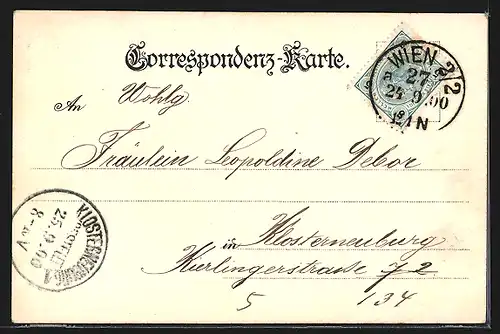 Correspondenz-Karte.
WIEN 2/2
a 27
24 9.00
12 N
An Wohlg
Fräulein Leopoldine Debor
in Klosterneuburg
Kierlingerstrasse 72
5 134
KLOSTERNEUBURG 1
BESTELLT
25.9.00
8-
V